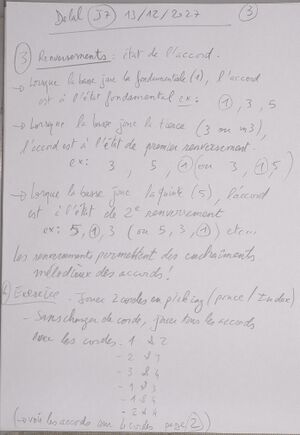 Delal (J7) 13/12/2027 (3)
(3) Renversements : état de l'accord.
→ Lorsque la basse joue la fondamentale (1), l'accord
est à l'état fondamental ex : (1), 3, 5
→ Lorsque la basse joue la tierce (3 ou m3),
l'accord est à l'état de premier renversement.
ex : 3, 5, (1) (ou 3, (1), 5)
→ Lorsque la basse joue la quinte (5), l'accord
est à l'état de 2e renversement
ex : 5, (1), 3 (ou 5, 3, (1)) etc...
Les renversements permettent des enchaînements
mélodieux des accords !
Exercice - Jouer 2 cordes en picking (pouce / Index)
- Sans changer de corde, jouer tous les accords
avec les cordes - 1 & 2
- 2 & 3
- 3 & 4
- 1 & 3
- 1 & 4
- 2 & 4
(→ voir les accords sur 4 cordes page (2))